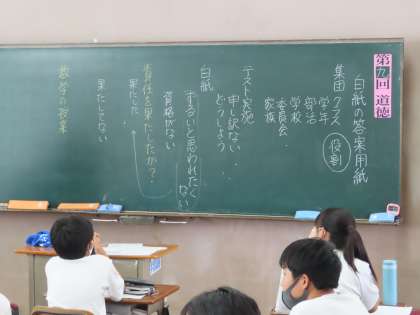 第九回 道徳
白紙の答案用紙
役割
集団 クラス
学年
部活
学校
委員会・
家族
テスト実施
申し訳ない・・
どうしよう
白紙
ずるいと思われたくない
資格がない
責任を果たしたか？
果たした
果たしてない
数学の授業